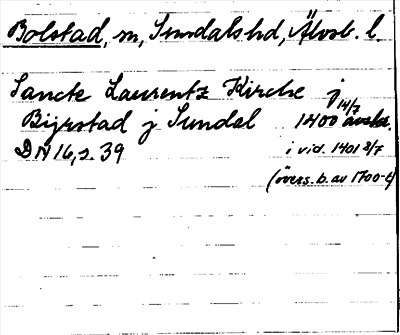 Bolstad, sn, Sundals hd, Älvsb. l.
Sancte Laurentz Kirche j
Bijrstad j Sundal 1400 14/7 avskr.
DN 16, s. 39 i vid. 1401 3/7
(övers. b. av 1700-t)